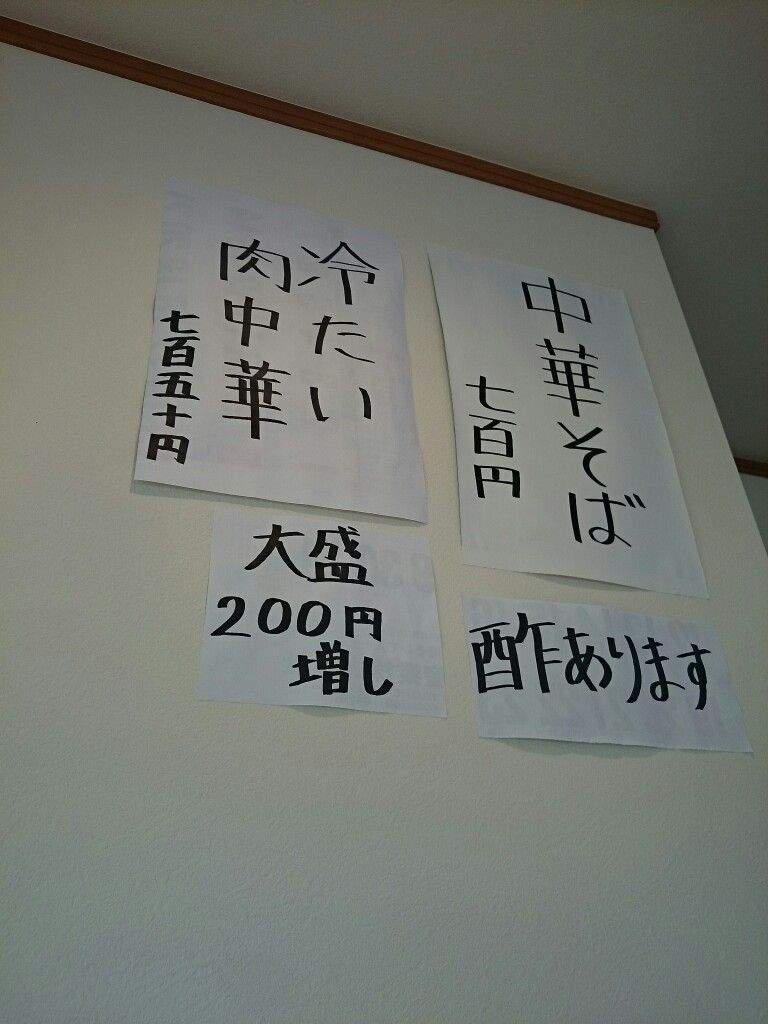 中華そば
七百円
冷たい
肉中華
七百五十円
大盛
200円
増し
酢あります